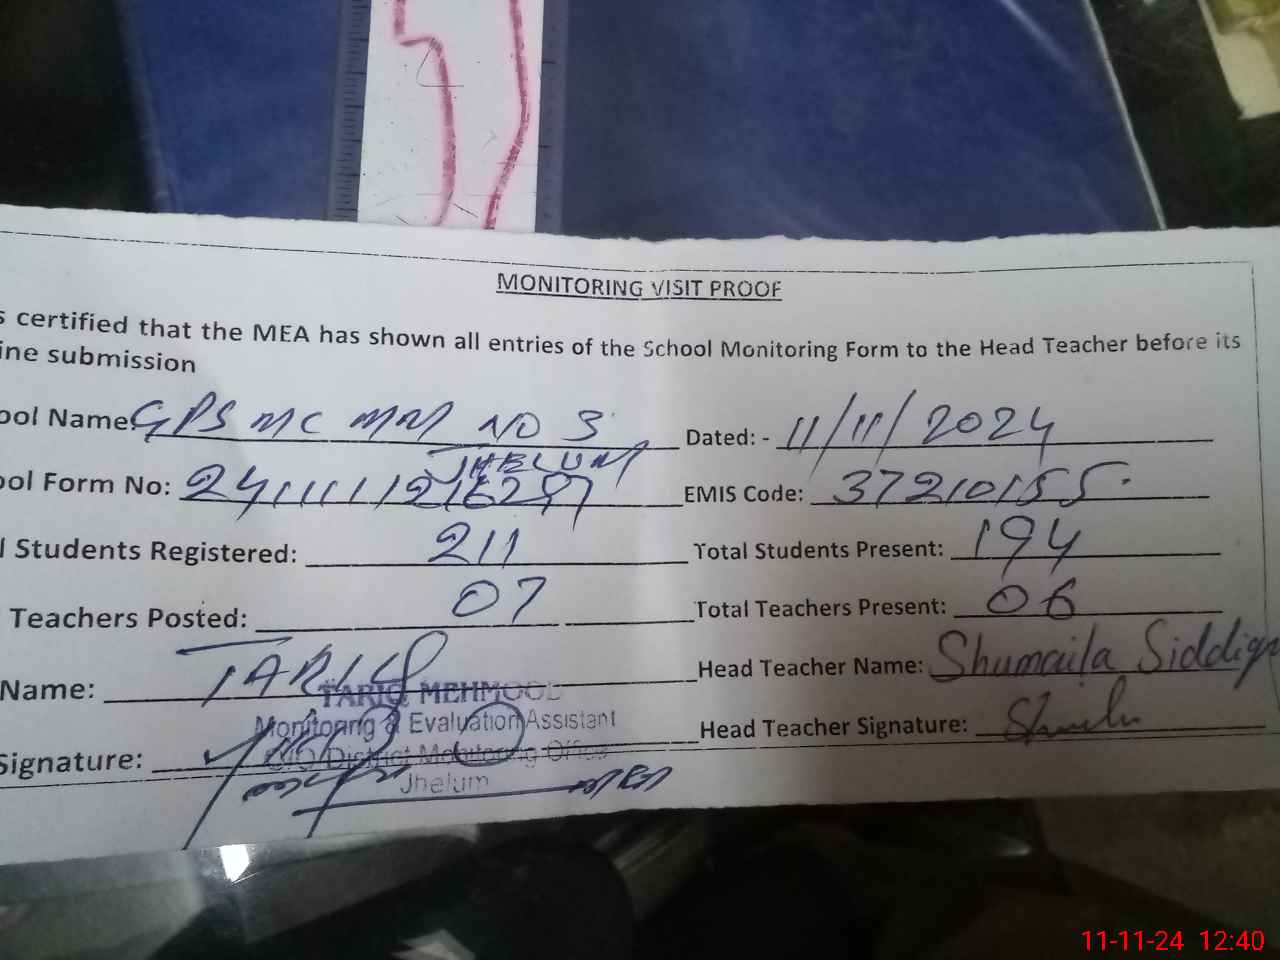 MONITORING VISIT PROOF
s certified that the MEA has shown all entries of the School Monitoring Form to the Head Teacher before its
ine submission
ool Name GPS MC MM NO 3 Dated: - 11/11/2024
JHELUM
ool Form No: EMIS Code: 37210155
l Students Registered: 211 Total Students Present: 194
Teachers Posted: 07 Total Teachers Present: 06
Name: TARIQ Head Teacher Name: Shumaila Siddiqa
TARIQ MEHMOOD
Monitoring & Evaluation Assistant
Signature: Head Teacher Signature:
O/O District Monitoring Office
Jhelum
MEA
11-11-24 12:40